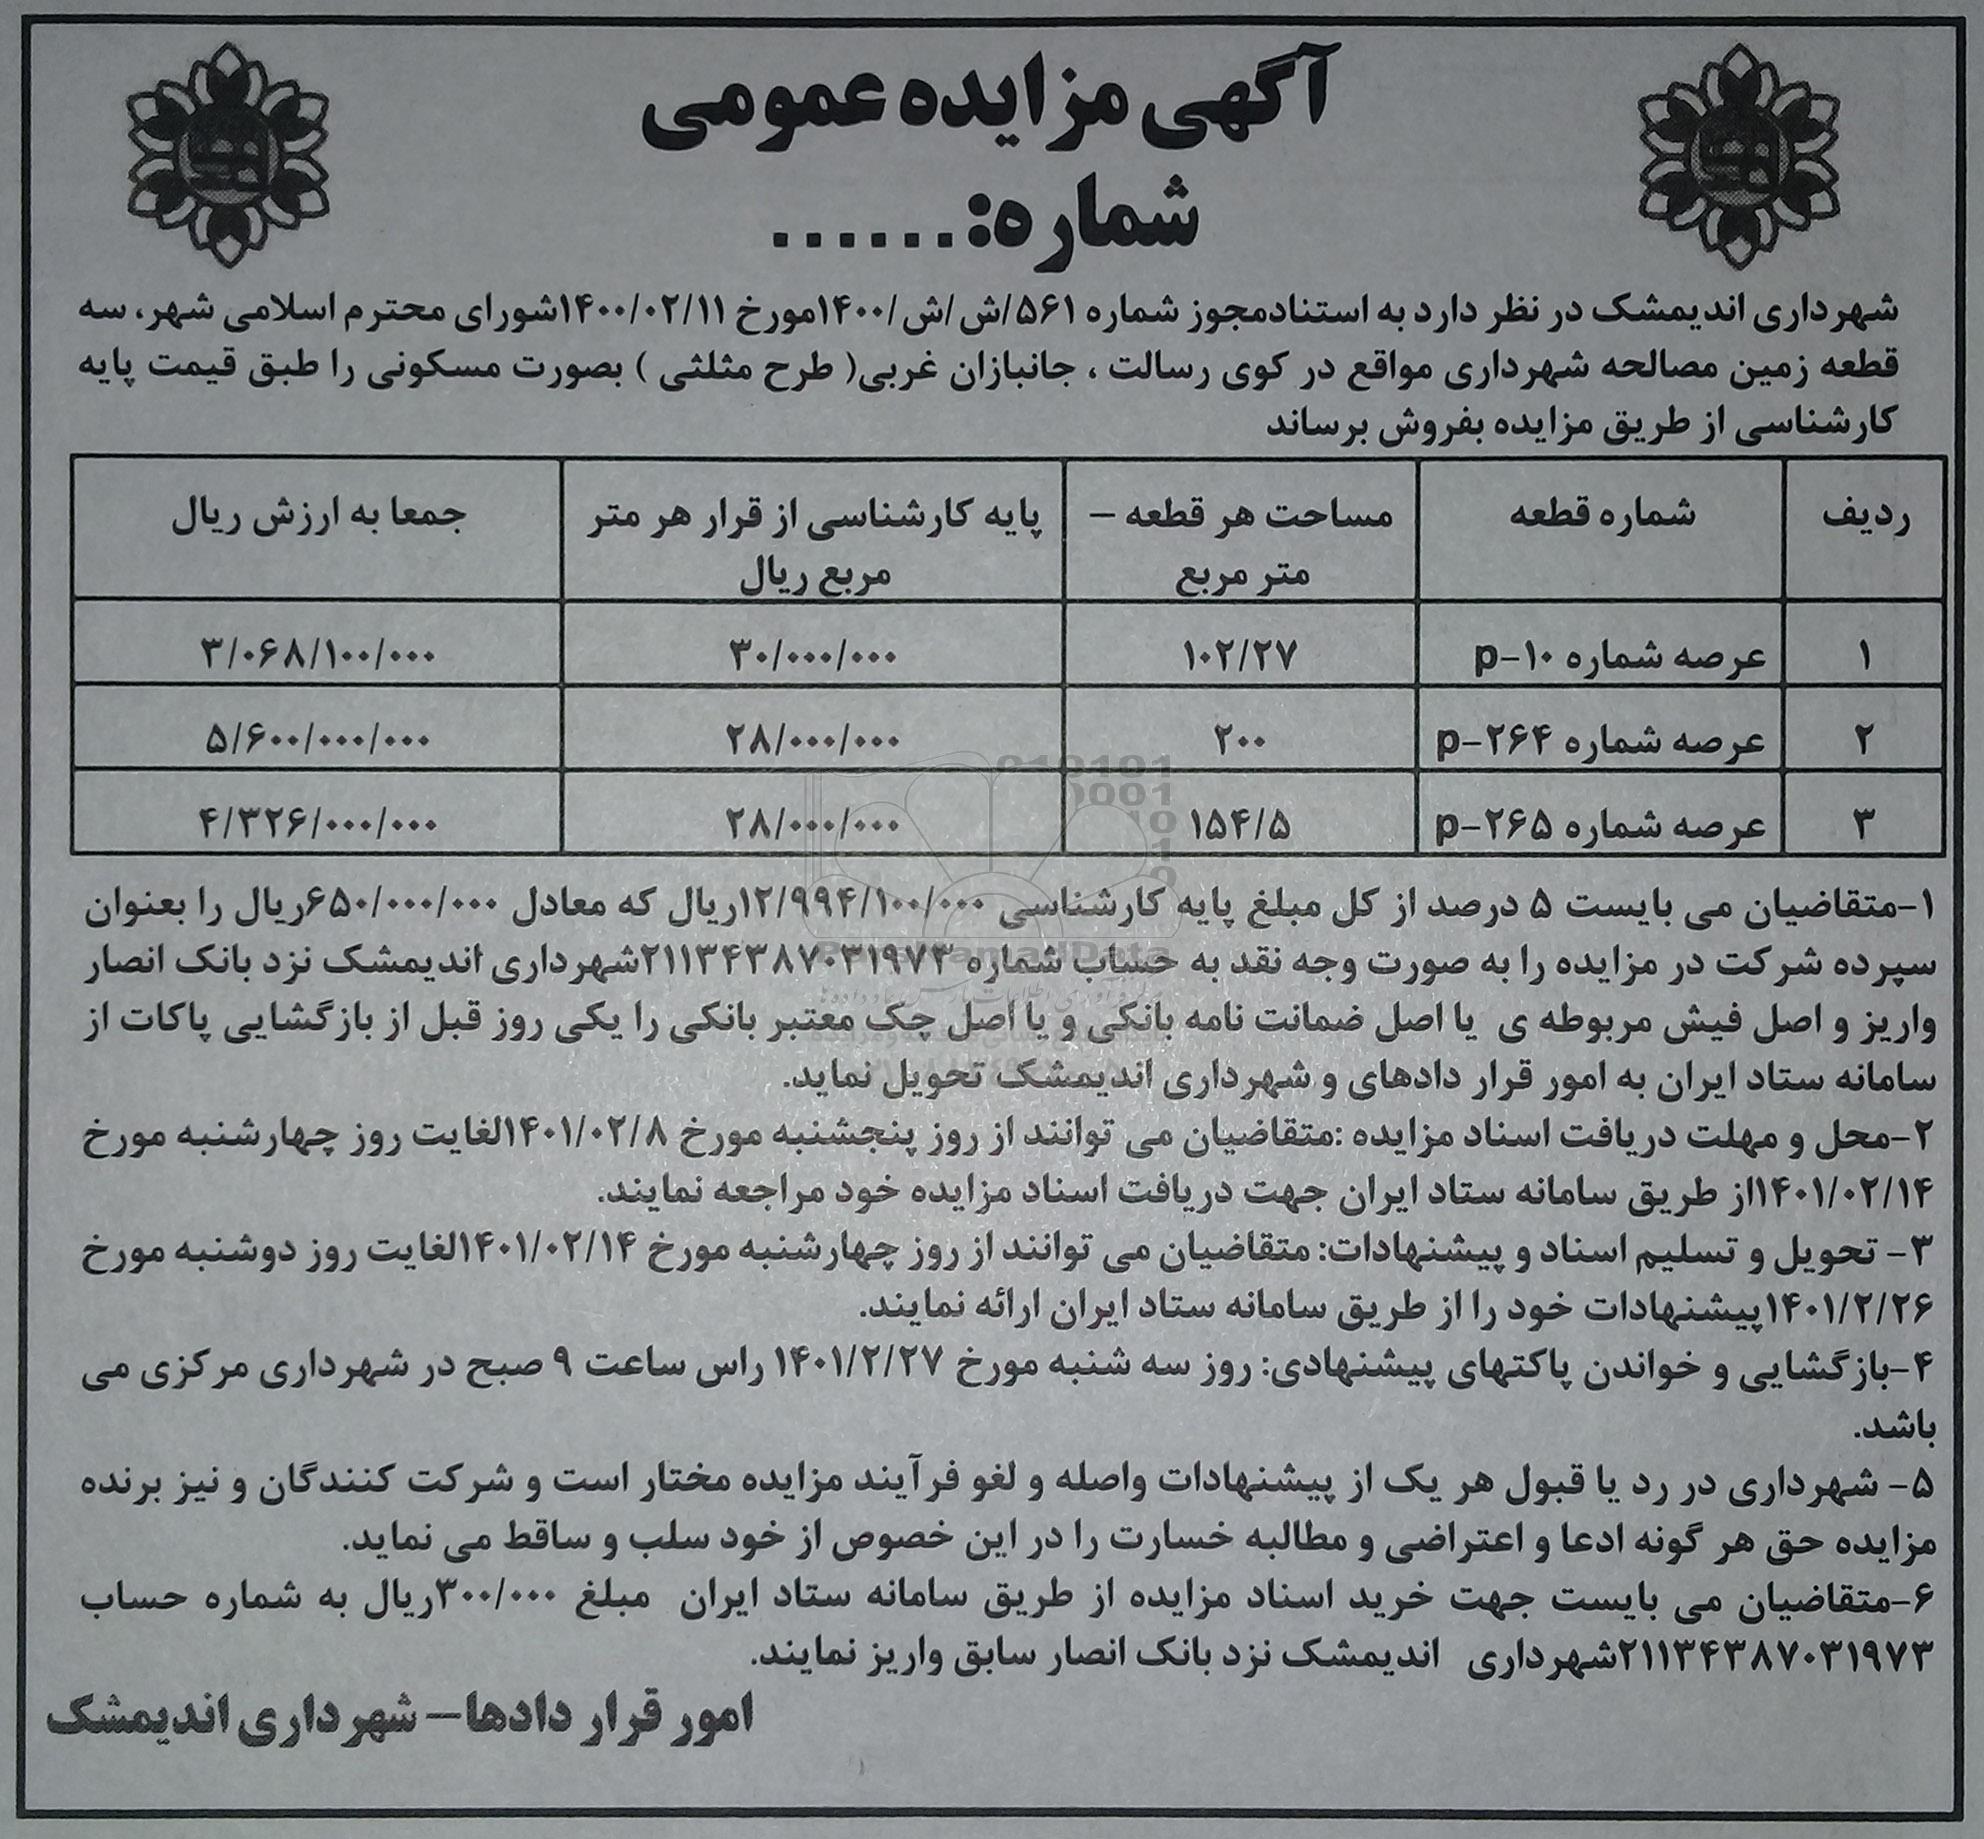 آگهی مزایده عمومی
شماره:......
شهرداری اندیمشک در نظر دارد به استنادمجوز شماره ۵۶۱/ش/ش/۱۴۰۰مورخ ۱۴۰۰/۰۲/۱۱شورای محترم اسلامی شهر، سه
قطعه زمین مصالحه شهرداری مواقع در کوی رسالت ، جانبازان غربی( طرح مثلثی ) بصورت مسکونی را طبق قیمت پایه
کارشناسی از طریق مزایده بفروش برساند
ردیف | شماره قطعه | مساحت هر قطعه – متر مربع | پایه کارشناسی از قرار هر متر مربع ریال | جمعا به ارزش ریال
۱ | عرصه شماره p-۱۰ | ۱۰۲/۲۷ | ۳۰/۰۰۰/۰۰۰ | ۳/۰۶۸/۱۰۰/۰۰۰
۲ | عرصه شماره p-۲۶۴ | ۲۰۰ | ۲۸/۰۰۰/۰۰۰ | ۵/۶۰۰/۰۰۰/۰۰۰
۳ | عرصه شماره p-۲۶۵ | ۱۵۴/۵ | ۲۸/۰۰۰/۰۰۰ | ۴/۳۲۶/۰۰۰/۰۰۰
۱-متقاضیان می بایست ۵ درصد از کل مبلغ پایه کارشناسی ۱۲/۹۹۴/۱۰۰/۰۰۰ریال که معادل ۶۵۰/۰۰۰/۰۰۰ریال را بعنوان
سپرده شرکت در مزایده را به صورت وجه نقد به حساب شماره ۲۱۱۳۴۳۸۷۰۳۱۹۷۳شهرداری اندیمشک نزد بانک انصار
واریز و اصل فیش مربوطه ی یا اصل ضمانت نامه بانکی و یا اصل چک معتبر بانکی را یکی روز قبل از بازگشایی پاکات از
سامانه ستاد ایران به امور قرار دادهای و شهرداری اندیمشک تحویل نماید.
۲-محل و مهلت دریافت اسناد مزایده :متقاضیان می توانند از روز پنجشنبه مورخ ۱۴۰۱/۰۲/۸لغایت روز چهارشنبه مورخ
۱۴۰۱/۰۲/۱۴از طریق سامانه ستاد ایران جهت دریافت اسناد مزایده خود مراجعه نمایند.
۳- تحویل و تسلیم اسناد و پیشنهادات: متقاضیان می توانند از روز چهارشنبه مورخ ۱۴۰۱/۰۲/۱۴لغایت روز دوشنبه مورخ
۱۴۰۱/۲/۲۶پیشنهادات خود را از طریق سامانه ستاد ایران ارائه نمایند.
۴-بازگشایی و خواندن پاکتهای پیشنهادی: روز سه شنبه مورخ ۱۴۰۱/۲/۲۷ راس ساعت ۹ صبح در شهرداری مرکزی می
باشد.
۵- شهرداری در رد یا قبول هر یک از پیشنهادات واصله و لغو فرآیند مزایده مختار است و شرکت کنندگان و نیز برنده
مزایده حق هر گونه ادعا و اعتراضی و مطالبه خسارت را در این خصوص از خود سلب و ساقط می نماید.
۶-متقاضیان می بایست جهت خرید اسناد مزایده از طریق سامانه ستاد ایران مبلغ ۳۰۰/۰۰۰ریال به شماره حساب
۲۱۱۳۴۳۸۷۰۳۱۹۷۳شهرداری اندیمشک نزد بانک انصار سابق واریز نمایند.
امور قرار دادها– شهرداری اندیمشک